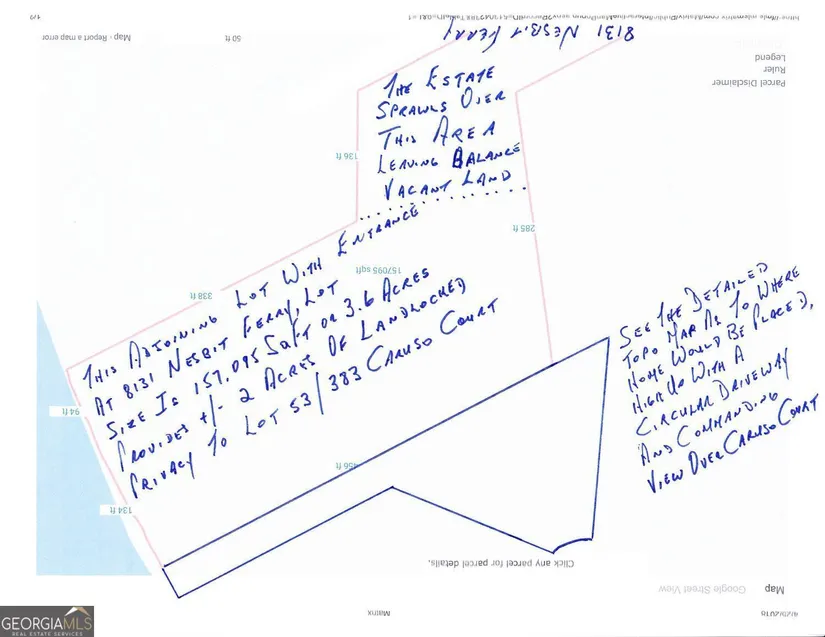 8131 NESBIT FERRY
THE ESTATE
SPRAWLS OVER
THIS AREA
LEAVING BALANCE
VACANT LAND
THIS ADJOINING LOT WITH ENTRANCE
AT 8131 NESBIT FERRY, LOT
SIZE IS 157,095 SQ FT OR 3.6 ACRES
PROVIDES +/- 2 ACRES OF LANDLOCKED
PRIVACY TO LOT 53/383 CARUSO COURT
SEE THE DETAILED
TOPO MAP AS TO WHERE
HOME WOULD BE PLACED,
HIGH UP WITH A
CIRCULAR DRIVEWAY
AND COMMANDING
VIEW OVER CARUSO COURT
1/3
Map - Report a map error
50 ft
Legend
Ruler
Parcel Disclaimer
136 ft
285 ft
157095 sqft
338 ft
94 ft
134 ft
456 ft
Click any parcel for parcel details.
Map
Google Street View
Matrix
GEORGIAMLS
REAL ESTATE SERVICES